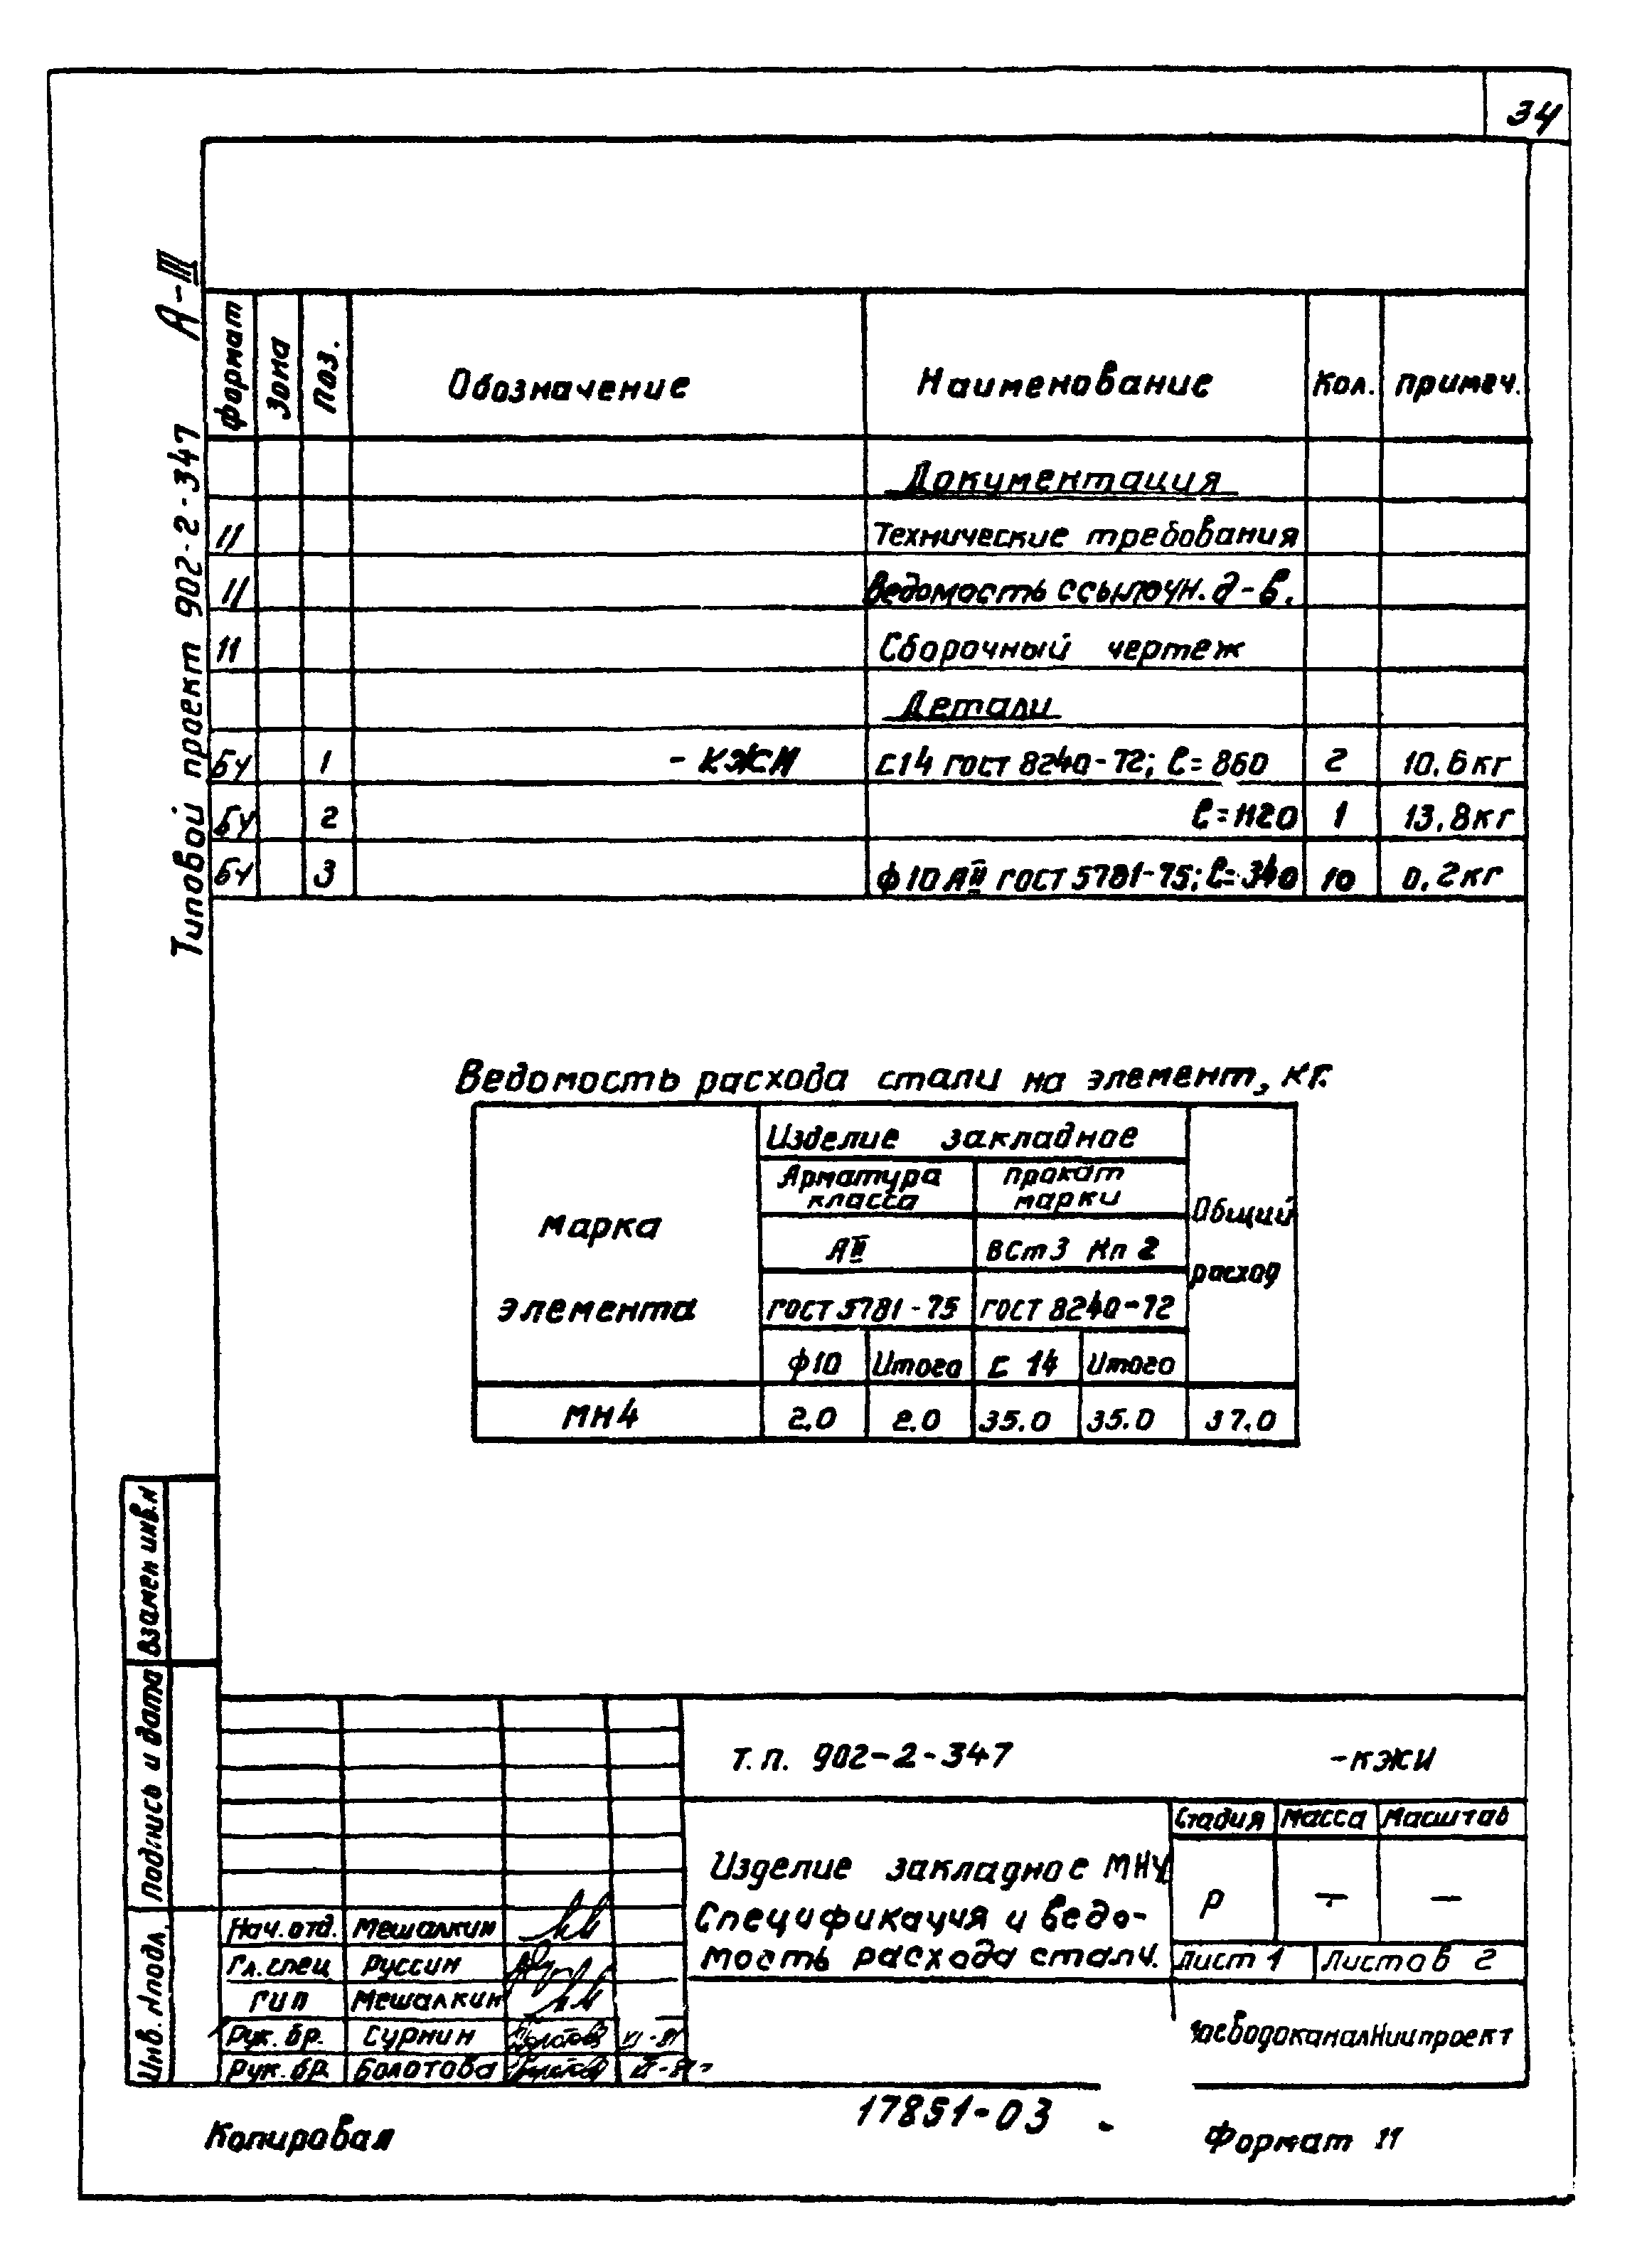 34
А-III
Типовой проект 902-2-347
формат Зона Поз. Обозначение Наименование Кол. примеч.
Документация
11 Технические требования
11 Ведомость ссылочн. д-в.
11 Сборочный чертеж
Детали
БЧ 1 -КЖСИ С14 ГОСТ 8240-72; ℓ=860 2 10.6кг
БЧ 2 ℓ=1120 1 13.8кг
БЧ 3 ф10 АII ГОСТ 5781-75; ℓ=340 10 0.2кг
Ведомость расхода стали на элемент, кг.
марка элемента
Изделие закладное
Общий расход
Арматура класса
прокат марки
АII ВСт3 Кп 2
ГОСТ 5781-75 ГОСТ 8240-72
ф10 Итого С 14 Итого
МН4 2.0 2.0 35.0 35.0 37.0
Взамен инв.N
Подпись и дата
Инв. Nподл.
т.п. 902-2-347 -КЭЖИ
Стадия Масса Масштаб
Изделие закладное МН4
Спецификация и ведо-
мость расхода стали.
Р - -
Лист 1 Листов 2
Нач.отд. Мешалкин
Гл.спец Руссин
ГИП Мешалкин
Рук. бр. Сурнин VI-81
Рук. бр. Болотова VI-81
ГосводоканалНиипроект
Копировал
17851-03
Формат 11